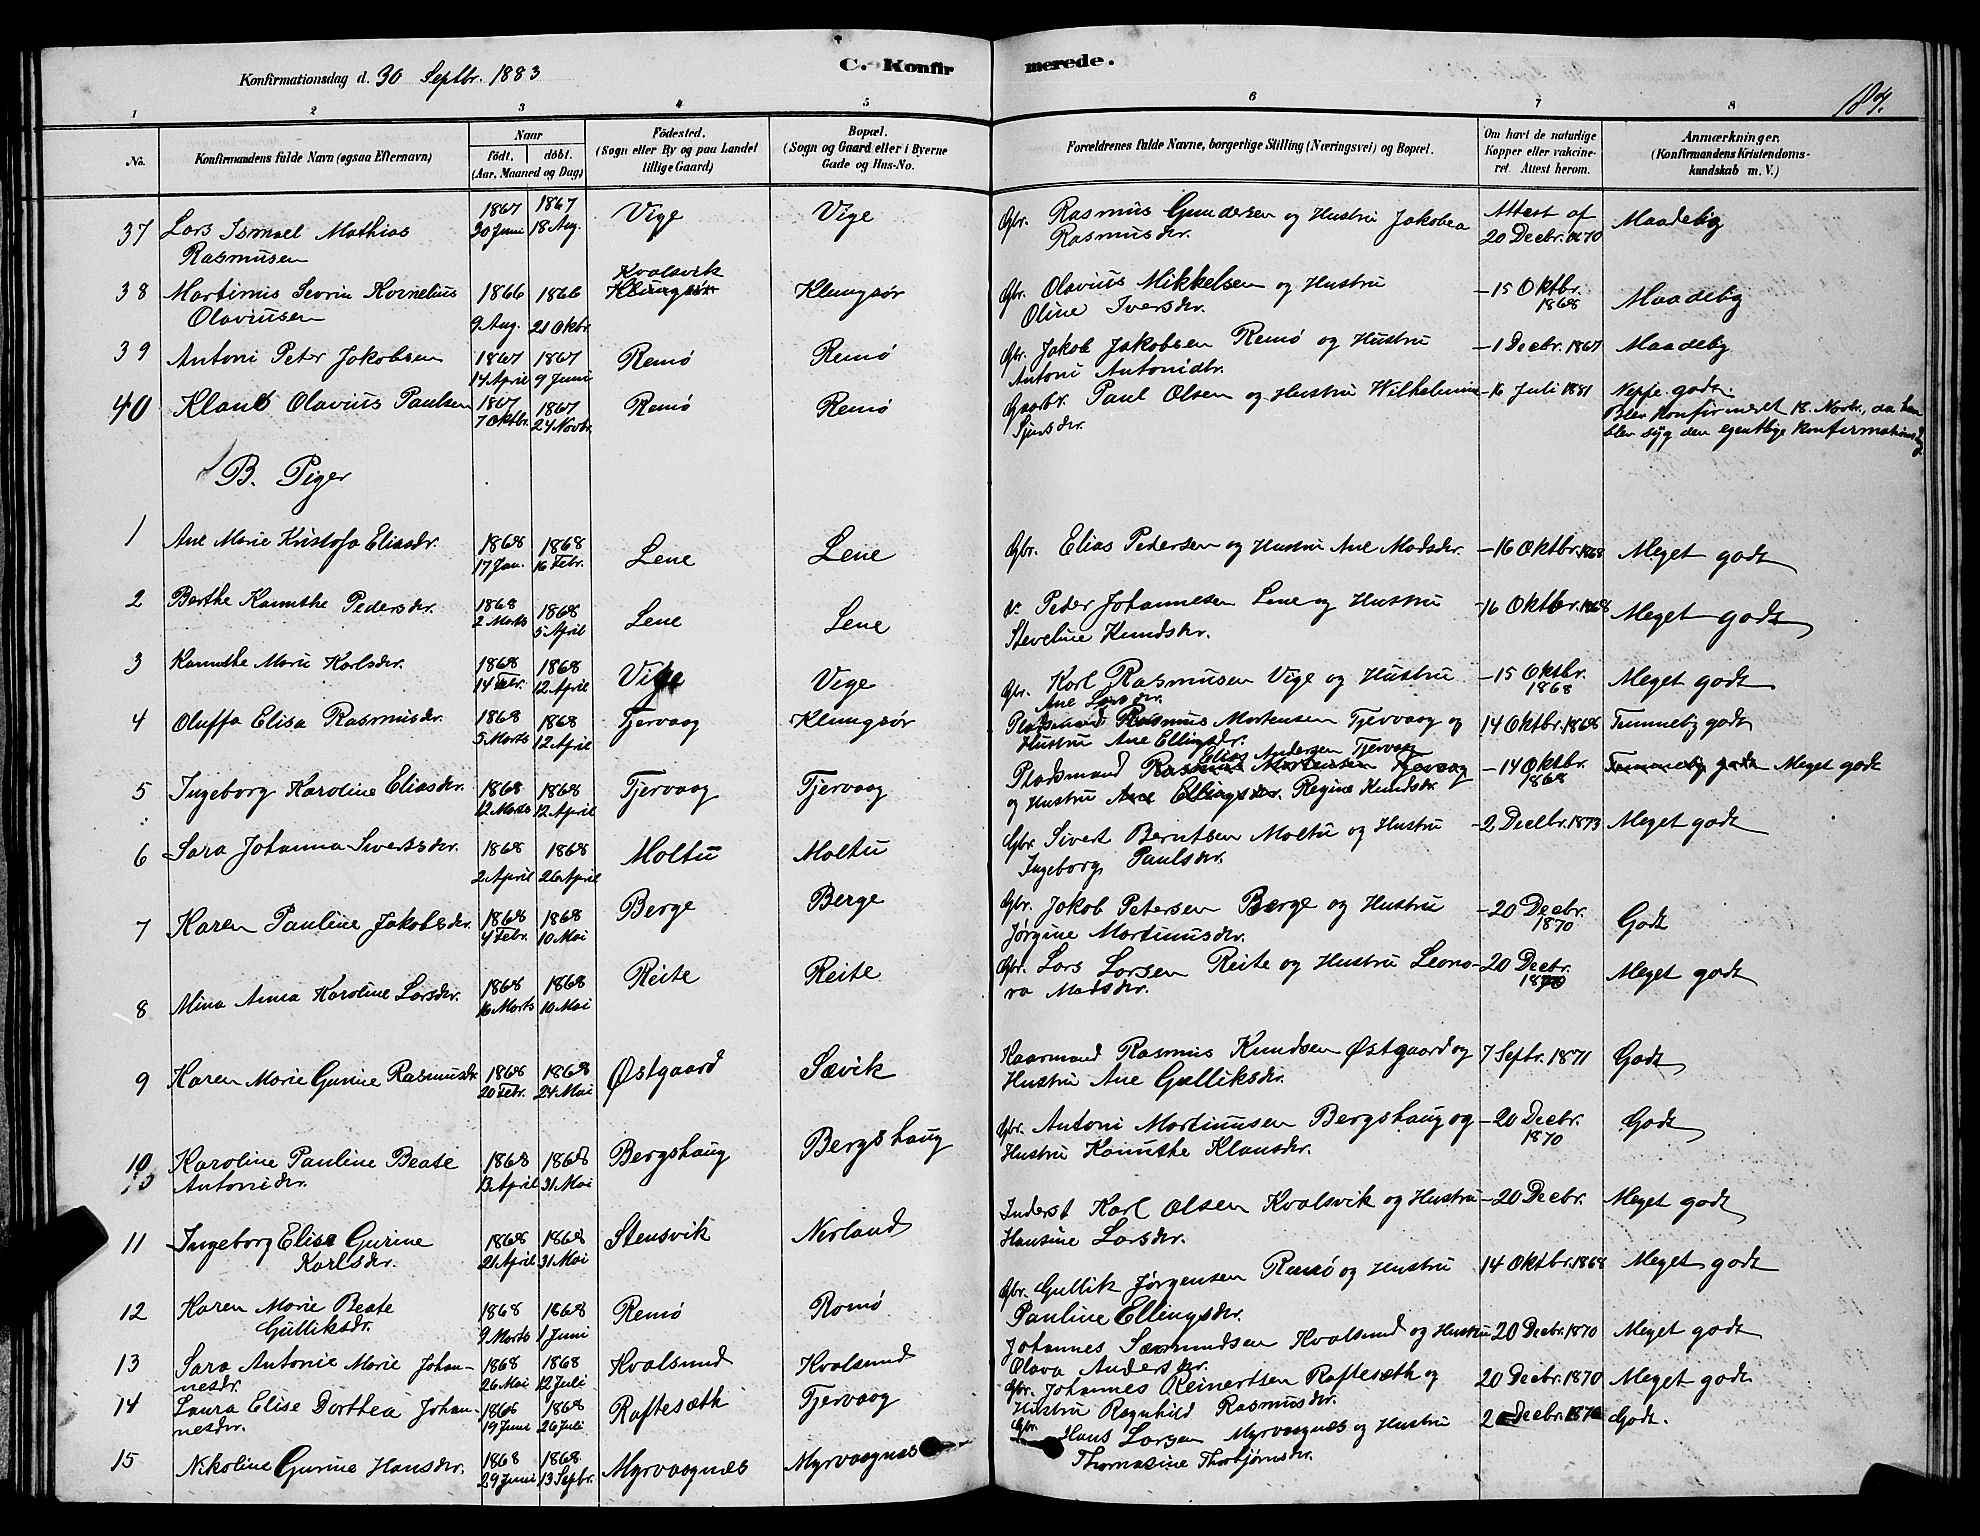 C. Konfirmerede.
Konfirmationsdag d. 30 Septbr. 1883
1 2 3 4 5 6 7 8
No. Konfirmandens fulde Navn (ogsaa Efternavn) Naar födt. döbt. (Aar, Maaned og Dag) Födested. (Sogn eller By og paa Landet tillige Gaard) Bopæl. (Sogn og Gaard eller i Byerne Gade og Hus-No. Forældrenes fulde Navne, borgerlige Stilling (Næringsvei) og Bopæl. Om havt de naturlige Kopper eller vakcineret. Attest herom. Anmærkninger. (Konfirmandens Kristendomskundskab m. V.)
37 Lars Ismael Mathias Rasmusen 1867 20 Juni 1867 18 Aug. Vige Vige Gbr. Rasmus Gundersen og Hustru Jakobea Rasmusdr. Attest af 20 Decbr. 1870 Maadelig
38 Martinus Sevrin Kornelius Olaviusen 1866 9 Aug. 1866 21 Oktbr. Kvalsvik Klungsør Klungsør Gbr. Olavius Mikkelsen og Hustru Oline Iversdr. - 15 Oktbr. 1868 Maadelig
39 Antoni Peter Jakobsen 1867 14 April 1867 9 Juni Remø Remø Gbr. Jakob Jakobsen Remø og Hustru Antoni Antonidtr. - 1 Decbr. 1867 Maadelig
40 Klaus Olavius Paulsen 1867 7 Oktbr. 1867 24 Novbr. Remø Remø Gaardbr. Paul Olsen og Hustru Wilhelmine Sjursdr. - 16 Juli 1881 Neppe godt. Blev konfirmeret 18. Novbr., da han blev syg den egentlige Konfirmationsdag
B. Piger
1 Ane Marie Kristofa Eliasdr. 1868 17 Jan. 1868 16 Febr. Lene Lene Gbr. Elias Pedersen og Hustru Ane Madsdr. - 16 Oktbr. 1868 Meget godt
2 Berthe Kanuthe Pedersdr. 1868 2 Marts 1868 5 April Lene Lene Peder Johannesen Lene og Hustru Steveline Knudsdr. - 16 Oktbr. 1868 Meget godt
3 Kanuthe Marie Karlsdr. 1868 14 Febr. 1868 12 April Vige Vige Gbr. Karl Rasmusen Vige og Hustru Ane Larsdr. - 15 Oktbr. 1868 Meget godt
4 Oluffa Elisa Rasmusdr. 1868 5 Marts 1868 12 April Tjervaag Klungsør Pladsmand Rasmus Mortensen Tjervaag og Hustru Ane Ellingsdr. 14 Oktbr. 1868 Temmelig godt
5 Ingeborg Karoline Eliasdr. 1868 12 Marts 1868 12 April Tjervaag Tjervaag Pladsmand Rasmus Mortensen Tjervaag Elias Andersen Tjervaag og Hustru Ane Ellingsdr. Regine Knudsdr. - 14 Oktbr. 1868 Temmelig godt Meget godt
6 Sara Johanna Sivertsdr. 1868 2 April 1868 26 April Moltu Moltu Gbr. Sivert Berntsen Moltu og Hustru Ingeborg Paulsdr. - 2 Decbr. 1873 Meget godt
7 Karen Pauline Jakobsdr. 1868 4 Febr. 1868 10 Mai Berge Berge Gbr. Jakob Petersen Berge og Hustru Jørgine Martinusdr. - 20 Decbr. 1870 Godt
8 Mina Anna Karoline Larsdr. 1868 16 Marts 1868 10 Mai Reite Reite Gbr. Lars Larsen Reite og Hustru Leonora Madsdr. - 20 Decbr. 1870 Meget godt
9 Karen Marie Gurine Rasmusdr. 1868 20 Febr. 1868 24 Mai Østgaard Sævik Kaarmand Rasmus Knudsen Østgaard og Hustru Ane Gulliksdr. 7 Septbr. 1871 Godt
10 Karoline Pauline Beate Antonidr. 1868 13 April 1868 31 Mai Bergshaug Bergshaug Gbr. Antoni Martinusen Bergshaug og Hustru Kanuthe Klausdr. - 20 Decbr. 1870 Godt
11 Ingeborg Elise Gurine Karlsdr. 1868 21 April 1868 31 Mai Stensvik Nerland Inderst Karl Olsen Kvalsvik og Hustru Hansine Larsdr. - 20 Decbr. Meget godt
12 Karen Marie Beate Gulliksdr. 1868 9 Marts 1868 1 Juni Remø Remø Gbr. Gullik Jørgensen Remø og Hustru Pauline Ellingsdr. 14 Oktbr. 1868 Meget godt
13 Sara Antonie Marie Johannesdr. 1868 26 Mai 1868 12 Juli Kvalsund Kvalsund Johannes Sæmundsen Kvalsund og Hustru Olava Andersdr. 20 Decbr. 1870 Meget godt
14 Laura Elise Dorthea Johannesdr. 1868 19 Juni 1868 26 Juli Raftesæth Tjervaag Gbr. Johannes Reinertsen Raftesæth og Hustru Ragnhild Rasmusdr. 20 Decbr. 1870 Meget godt
15 Nikoline Gurine Hansdr. 1868 29 Juni 1868 13 Septbr. Myrvaagnæs Myrvaagnæs Gbr. Hans Larsen Myrvaagnæs og Hustru Thomasine Thorbjørnsdr. 2 Decbr. Godt.